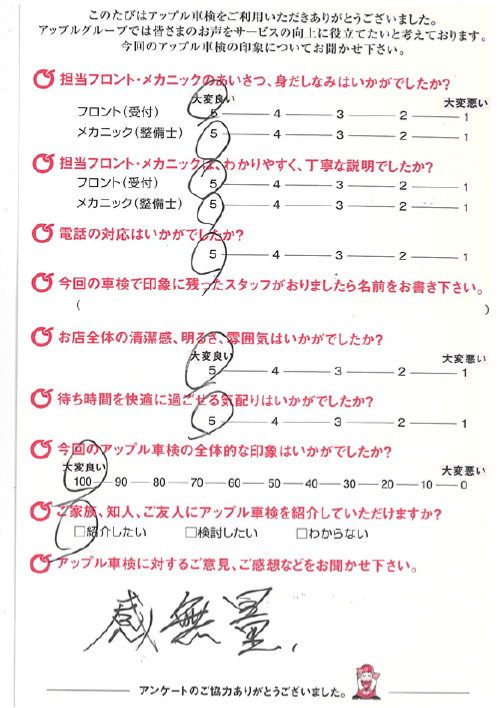 このたびはアップル車検をご利用いただきありがとうございました。
アップルグループでは皆さまのお声をサービスの向上に役立てたいと考えております。
今回のアップル車検の印象についてお聞かせ下さい。
担当フロント・メカニックのあいさつ、身だしなみはいかがでしたか?
大変良い 大変悪い
フロント(受付) 5 4 3 2 1
メカニック(整備士) 5 4 3 2 1
担当フロント・メカニックは、わかりやすく、丁寧な説明でしたか?
フロント(受付) 5 4 3 2 1
メカニック(整備士) 5 4 3 2 1
電話の対応はいかがでしたか?
5 4 3 2 1
今回の車検で印象に残ったスタッフがおりましたら名前をお書き下さい。
( )
お店全体の清潔感、明るさ、雰囲気はいかがでしたか?
大変良い 大変悪い
5 4 3 2 1
待ち時間を快適に過ごせる気配りはいかがでしたか?
5 4 3 2 1
今回のアップル車検の全体的な印象はいかがでしたか?
大変良い 大変悪い
100 90 80 70 60 50 40 30 20 10 0
ご家族、知人、ご友人にアップル車検を紹介していただけますか?
□紹介したい □検討したい □わからない
アップル車検に対するご意見、ご感想などをお聞かせ下さい。
感無量.
アンケートのご協力ありがとうございました。